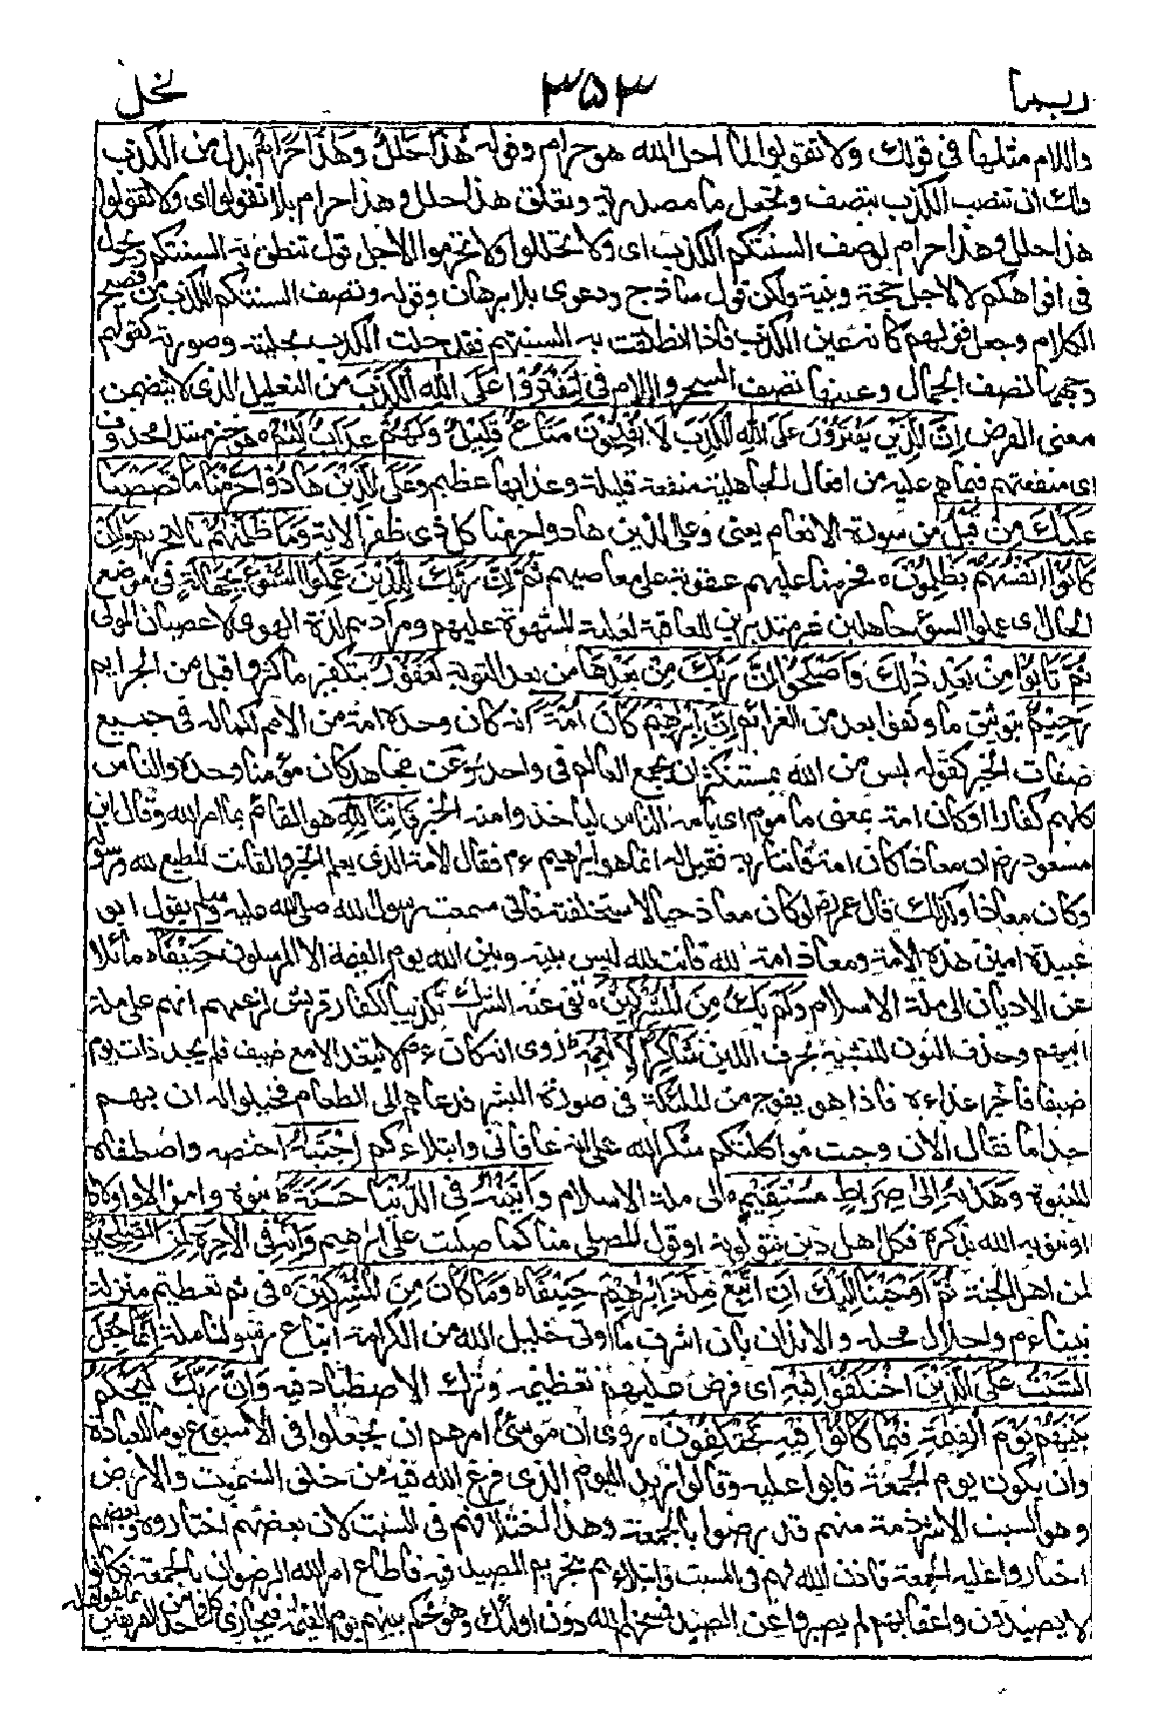 ربما ٣٥٣ نحل
واللام مثلها في قولك ولا تقولوا لما احل الله هو حرام وقوله هذا حلل وهذا حرام بدل من الكذب
ولك ان تنصب الكذب بتصف وتجعل ما مصدرية وتعلق هذا حلل وهذا حرام بلا تقولوا اى ولا تقولوا
هذا حلل وهذا حرام لوصف السنتكم الكذب اى ولا تحللوا ولا تحرموا لاجل قول تنطق به السنتكم ويجول
في افواهكم لا لاجل حجة وبينة ولكن قول ساذج ودعوى بلا برهان وقوله وتصف السنتكم الكذب من فصيح
الكلام وجعل قولهم كانه عين الكذب فاذا نطقت به السنتهم فقد حلت الكذب بحليته وصورته كقولهم
وجهها تصف الجمال وعينها تصف السحر واللام في لتفتروا على الله الكذب من التعليل الذى لا يتضمن
معنى الغرض ان الذين يفترون على الله الكذب لا يفلحون متاع قليل ولهم عذاب اليم ه هو خبر مبتدا محذوف
اى منفعتهم فيما هم عليه من افعال الجاهلية منفعة قليلة وعذابها عظيم وعلى الذين هادوا حرمنا ما قصصنا
عليك من قبل من سورة الانعام يعنى وعلى الذين هادوا حرمنا كل ذى ظفر الاية وما ظلمنهم بالتحريم ولكن
كانوا انفسهم يظلمون ه فحرمنا عليهم عقوبة على معاصيهم ثم ان ربك للذين عملوا السوء بجهالة في موضع
الحال اى عملوا السوء جاهلين غير متدبرين للعاقبة لغلبة الشهوة عليهم ومرادهم لذة الهوى لا عصيان المولى
ثم تابوا من بعد ذلك واصلحوا ان ربك من بعدها من بعد التوبة لغفور بتكفير ما كثروا قبل من الجرايم
رحيم بتوثيق ما وثقوا بعد من العزائم ان ابرهيم كان امة انه كان وحده امة من الامم لكماله في جميع
صفات الخير كقوله ليس من الله بمستنكر ان يجمع العالم في واحد وعن مجاهد كان مؤمنا وحده والناس
كلهم كفارا او كان امة بمعنى ماموم اى يامه الناس لياخذوا منه الخير قانتا لله هو القائم بما امر الله وقال ابن
مسعود رض ان معاذا كان امة قانتا لربه فقيل له انما هو ابرهيم ءم فقال الامة الذى يعلم الخير والقانت المطيع لله ورسوله
وكان معاذا وكذلك قال عمر رض لو كان معاذ حيا لاستخلفته فانى سمعت رسول الله صلى الله عليه وسلم يقول ابو
عبيدة امين هذه الامة ومعاذ امة لله قانت لله ليس بينه وبين الله يوم القيمة الا المرسلون حنيفا ه مائلا
عن الاديان الى ملة الاسلام ولم يك من المشركين ه نفى عنه الشرك تكذيبا لكفار قريش لزعمهم انهم على ملة
ابيهم وحذف النون للتشبيه بحرف اللين شاكرا لانعمه ط روى انه كان ءم لا يتغدى الا مع ضيف فلم يجد ذات يوم
ضيفا فاخر غداءه فاذا هو بفوج من الملئكة في صورة البشر فدعاهم الى الطعام فخيلوا له ان بهم
جذاما فقال الان وجبت مواكلتكم شكرا لله على انه عافانى وابتلاءكم اجتبه اختصه واصطفاه
للنبوة وهداه الى صراط مستقيم ه الى ملة الاسلام واتينه في الدنيا حسنة ط نبوة واموالا واولادا
او تنويه الله بذكره فكل اهل دين يتولونه او قول المصلى منا كما صليت على ابرهيم وانه في الاخرة لمن الصلحين
لمن اهل الجنة ثم اوحينا اليك ان اتبع ملة ابرهيم حنيفا ه وما كان من المشركين ه في ثم تعظيم منزلة
نبينا ءم واجلال محله والايذان بان اشرف ما اوتى خليل الله من الكرامة اتباع رسولنا ملته انما جعل
السبت على الذين اختلفوا فيه اى فرض عليهم تعظيمه وترك الاصطياد فيه وان ربك ليحكم
بينهم يوم القيمة فيما كانوا فيه يختلفون ه روى ان موسى امرهم ان يجعلوا في الاسبوع يوما للعبادة
وان يكون يوم الجمعة فابوا عليه وقالوا نريد اليوم الذى فرغ الله فيه من خلق السموت والارض
وهو السبت الا شرذمة منهم قد رضوا بالجمعة وهذا اختلافهم في السبت لان بعضهم اختاروه وبعضهم
اختاروا عليه الجمعة فاذن الله لهم في السبت وابتلاهم بتحريم الصيد فيه فاطاع امر الله الراضون بالجمعة فكانوا
لا يصيدون واعقابهم لم يصبروا عن الصيد فمسخهم الله دون اولئك وهو يحكم بينهم يوم القيمة فيجازى كل واحد من الفريقين